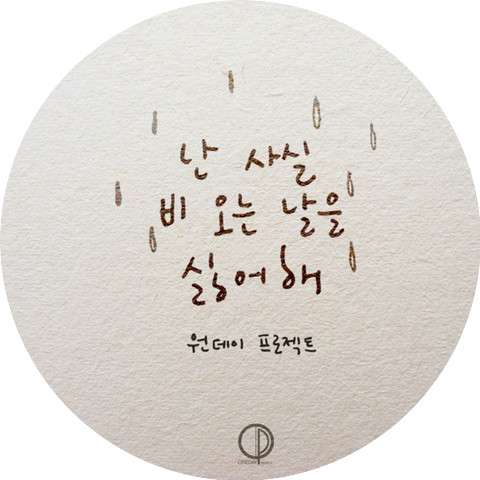 난 사실
비 오는 날을
싫어해
원데이 프로젝트